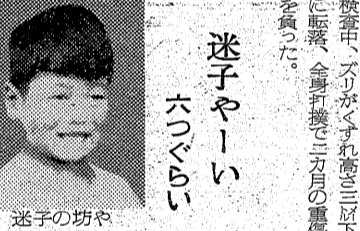 検査中、ズリがくずれ高さ三㍍下
に転落、全身打撲で二カ月の重傷
を負った。
迷子やーい
六つぐらい
迷子の坊や